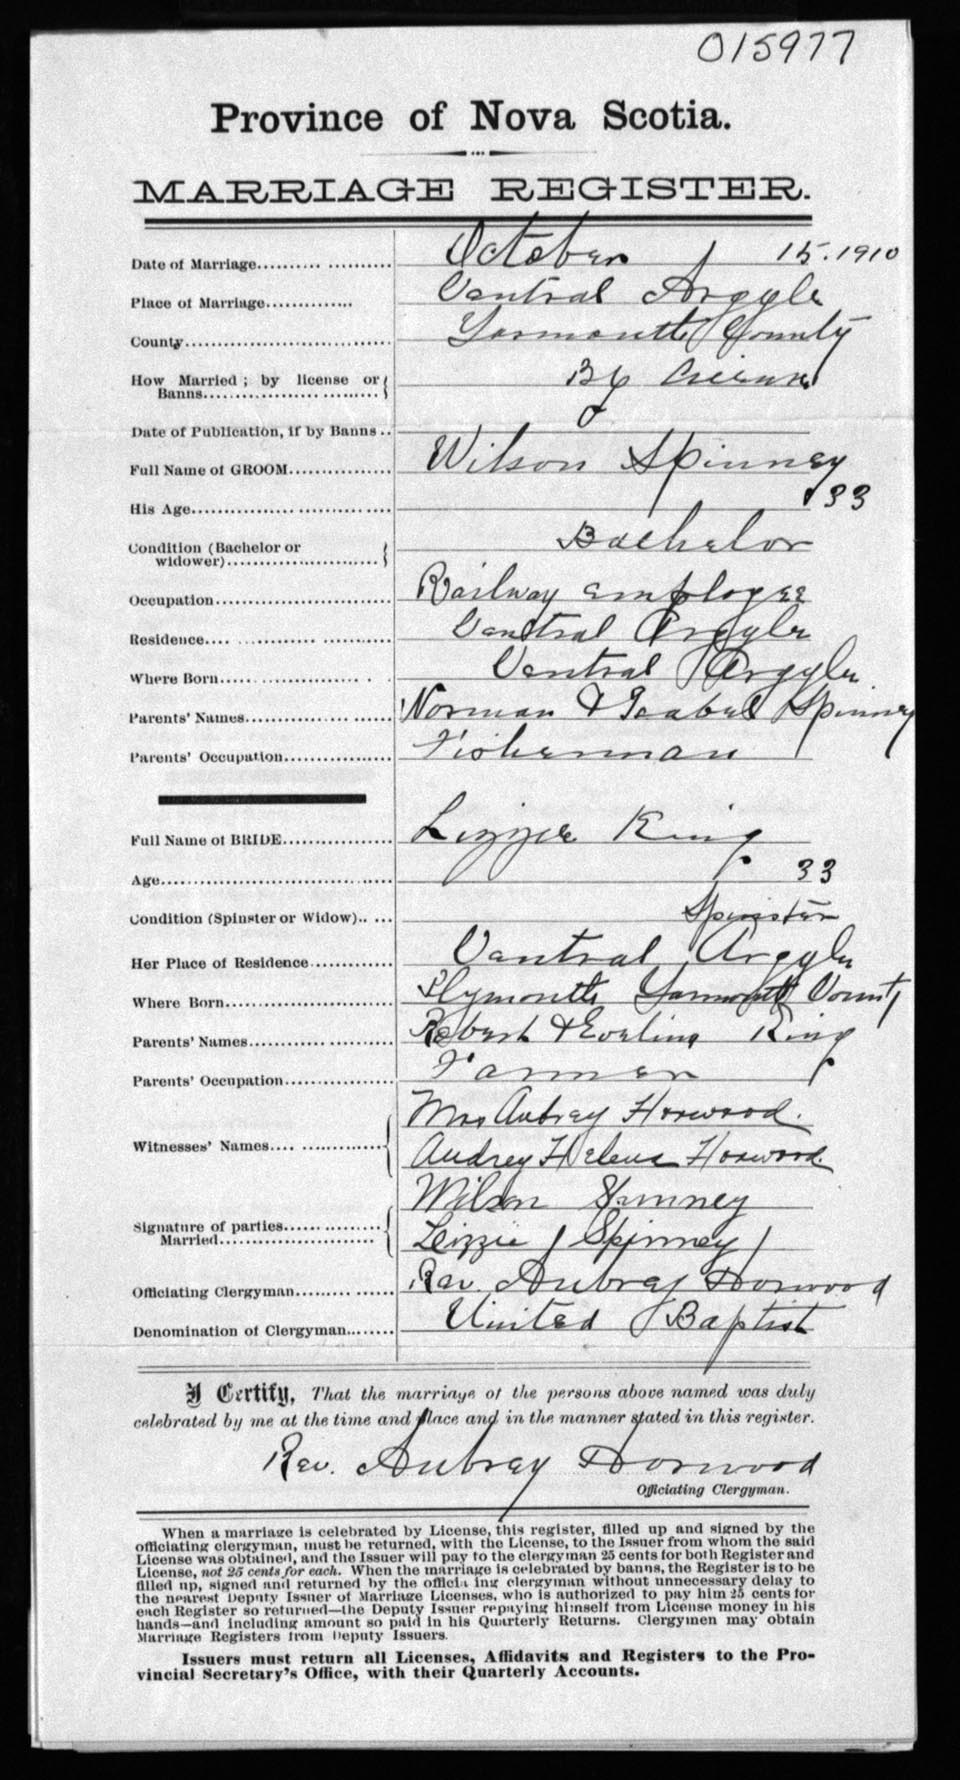 015977
Province of Nova Scotia.
MARRIAGE REGISTER.
Date of Marriage.......... ........... October 15. 1910
Place of Marriage............. Central Argyle
County................................ Yarmouth County
How Married ; by license or By License
Banns.............................
Date of Publication, if by Banns ..
Full Name of GROOM................ Wilson Spinney
His Age................................ 33
Condition (Bachelor or Bachelor
widower)..........................
Occupation........................... Railway employee
Residence.... ........... ............ Central Argyle
Where Born.......................... . Central Argyle
Parents' Names...................... Norman & Isabel Spinney
Parents' Occupation................. Fisherman
Full Name of BRIDE................. Lizzie King
Age.................................... 33
Condition (Spinster or Widow).. ... Spinster
Her Place of Residence............. Central Argyle
Where Born........................... Plymouth Yarmouth County
Parents' Names........... ........... Robert & Evelina King
Parents' Occupation................. Farmer
Mrs Aubrey Horwood.
Witnesses' Names.... ..............
Audrey Helena Horwood.
Wilson Spinney
Signature of parties..................
Married........................ Lizzie Spinney
Officiating Clergyman......... ....... Rev. Aubrey Horwood
Denomination of Clergyman........ United Baptist
I Certify, That the marriage of the persons above named was duly
celebrated by me at the time and place and in the manner stated in this register.
Rev. Aubrey Horwood
Officiating Clergyman.
When a marriage is celebrated by License, this register, filled up and signed by the
officiating clergyman, must be returned, with the License, to the Issuer from whom the said
License was obtained, and the Issuer will pay to the clergyman 25 cents for both Register and
License, not 25 cents for each. When the marriage is celebrated by banns, the Register is to be
filled up, signed and returned by the officia ing clergyman without unnecessary delay to
the nearest Deputy Issuer of Marriage Licenses, who is authorized to pay him 25 cents for
each Register so returned—the Deputy Issuer repaying himself from License money in his
hands—and including amount so paid in his Quarterly Returns. Clergymen may obtain
Marriage Registers from Deputy Issuers.
Issuers must return all Licenses, Affidavits and Registers to the Pro-
vincial Secretary's Office, with their Quarterly Accounts.